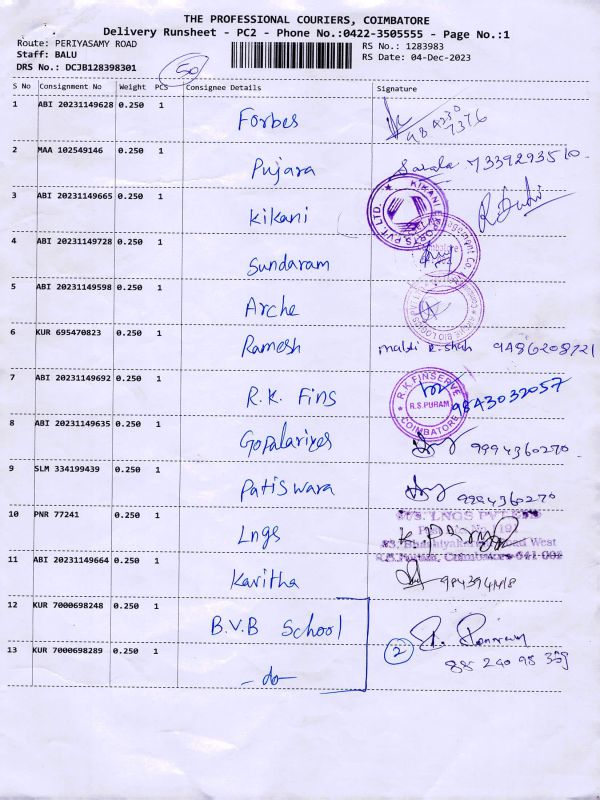 THE PROFESSIONAL COURIERS, COIMBATORE
Delivery Runsheet - PC2 - Phone No.:0422-3505555 - Page No.:1
Route: PERIYASAMY ROAD RS No.: 1283983
Staff: BALU RS Date: 04-Dec-2023
DRS No.: DCJB128398301 50
S No Consignment No Weight PCS Consignee Details Signature
1 ABI 20231149628 0.250 1 Forbes
2 MAA 102549146 0.250 1 Pujara Sarala 7339293510.
3 ABI 20231149665 0.250 1 Kikani
KIKANI EXPORTS PVT. LTD.
4 ABI 20231149728 0.250 1 Sundaram
5 ABI 20231149598 0.250 1 Arche
6 KUR 695470823 0.250 1 Ramesh 9486208721
7 ABI 20231149692 0.250 1 R.K. Fins 9843032057
R.K. FINSERVE
R.S. PURAM
COIMBATORE
8 ABI 20231149635 0.250 1 9994360270.
9 SLM 334199439 0.250 1 Patiswara 9994360270
10 PNR 77241 0.250 1 Lngs
11 ABI 20231149664 0.250 1 Kavitha
12 KUR 7000698248 0.250 1 B.V.B School
13 KUR 7000698289 0.250 1 - do - 2